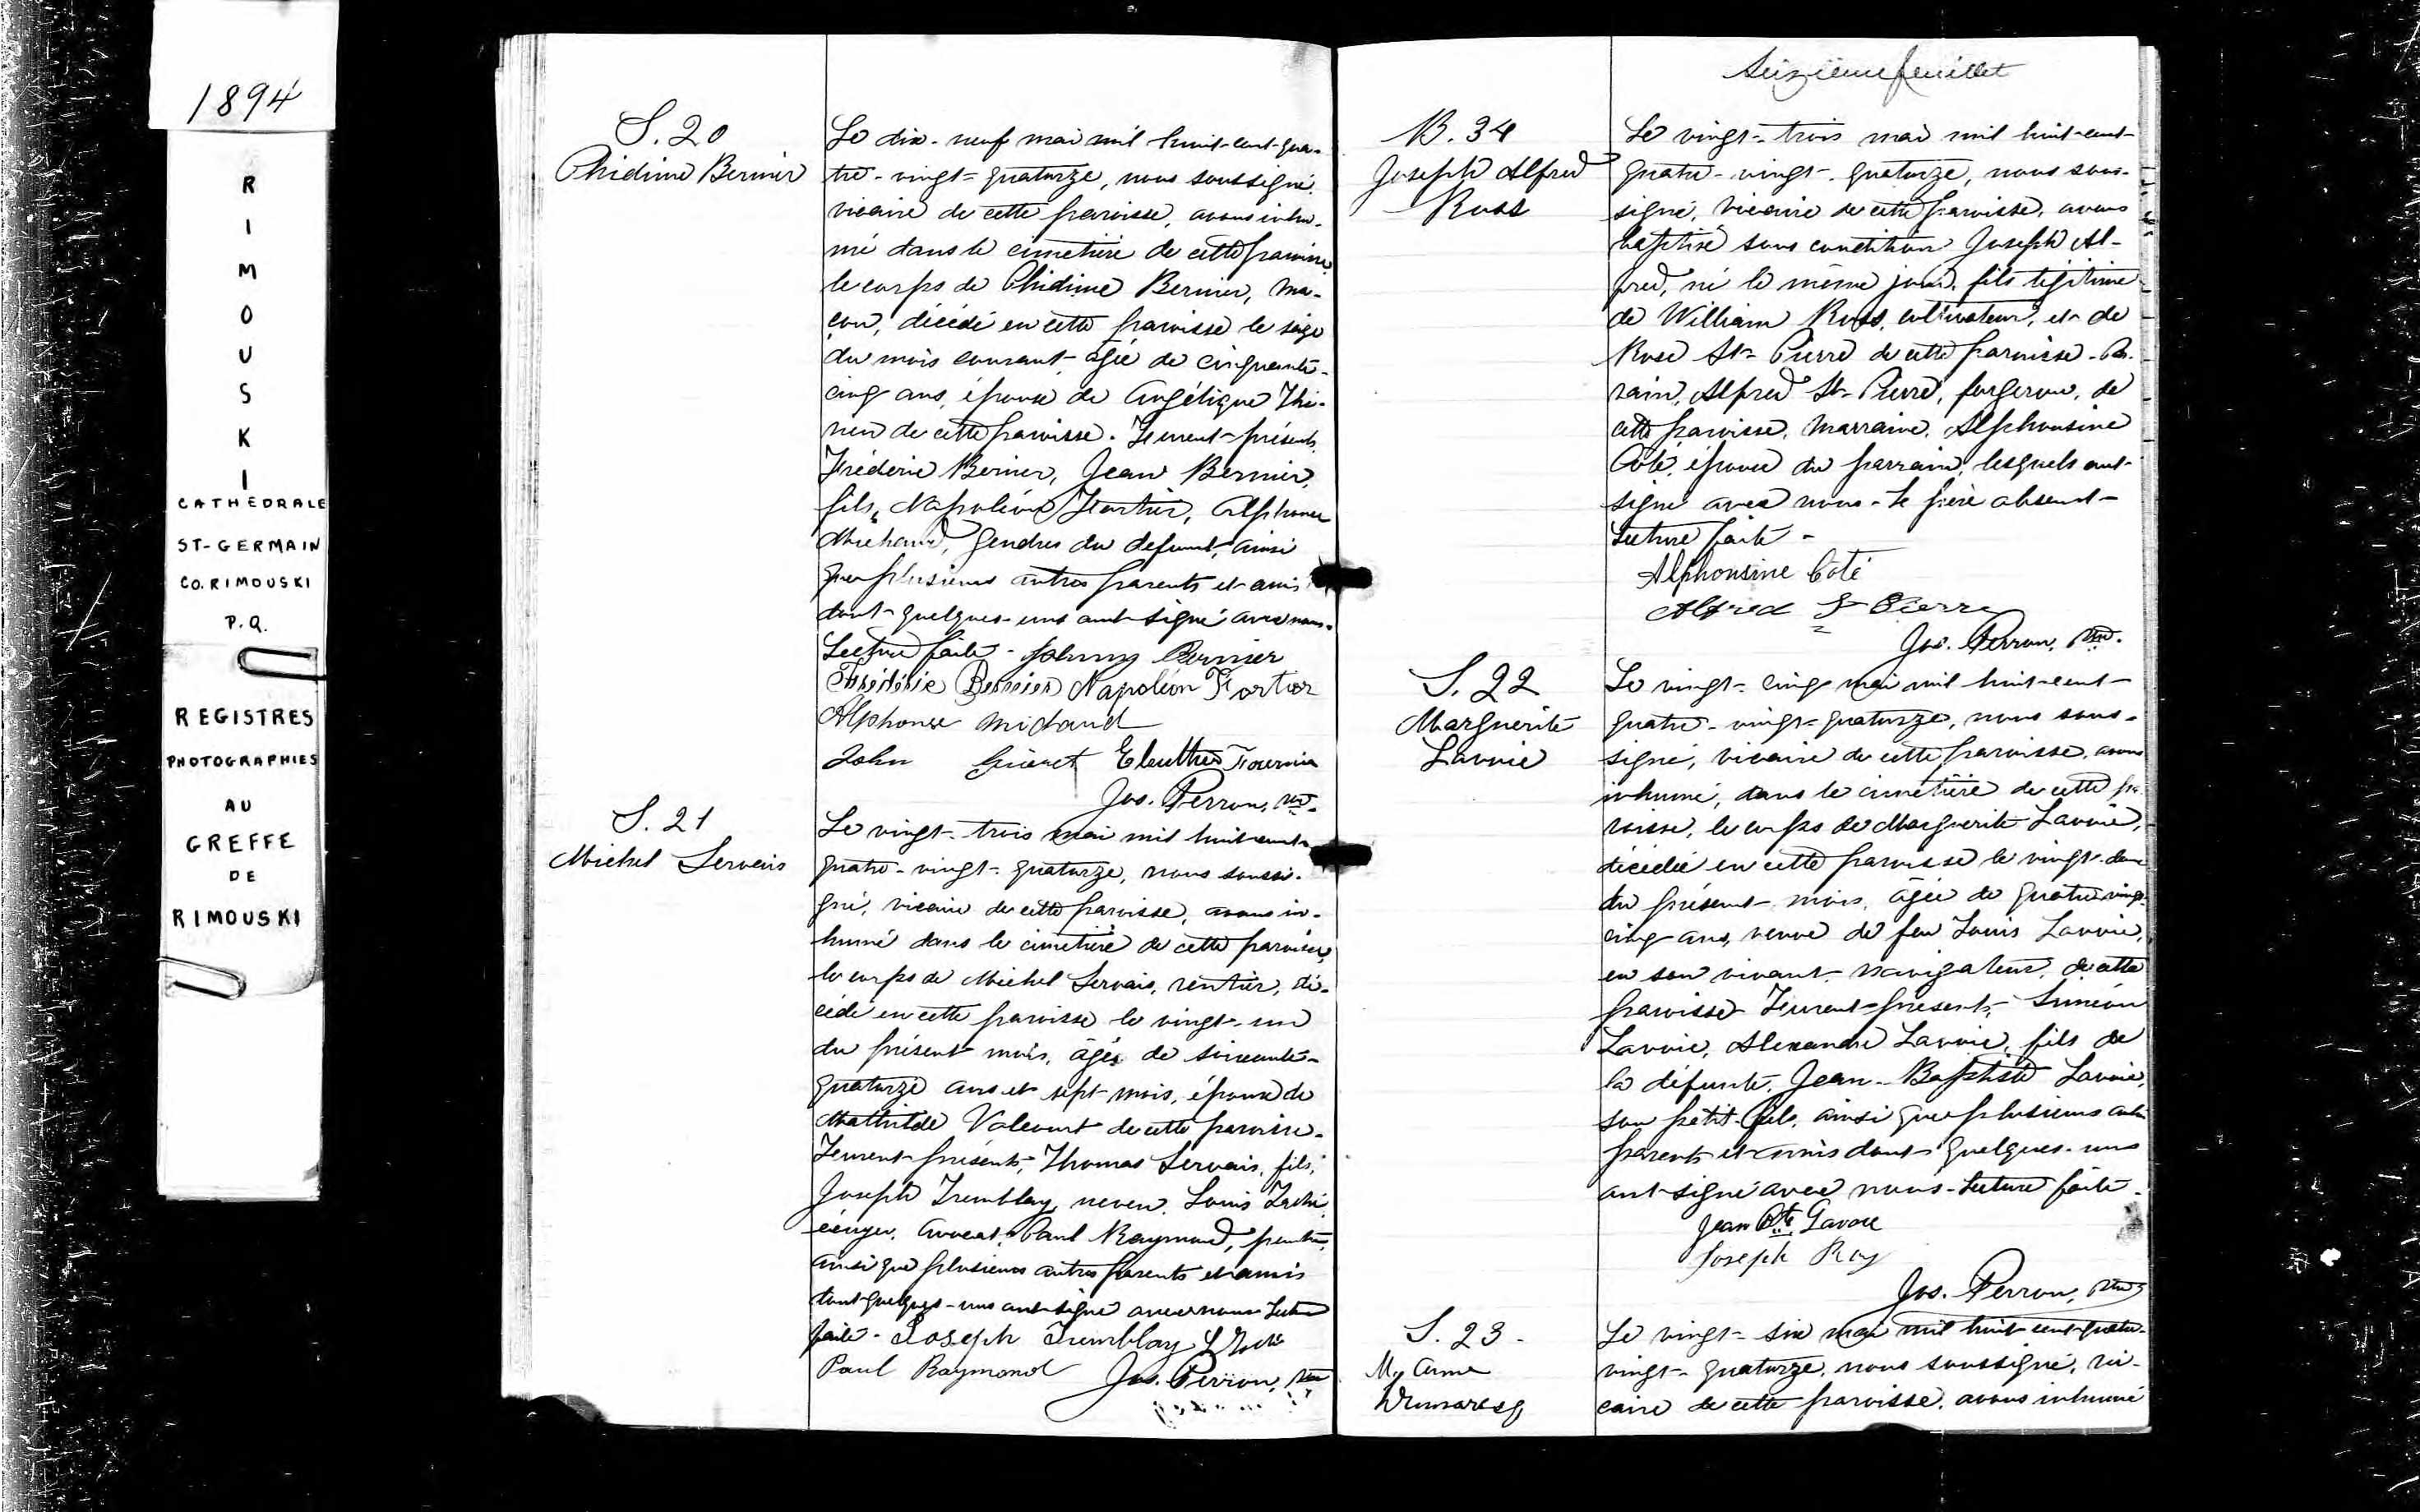 1894
R
I
M
O
U
S
K
I
CATHEDRALE
ST-GERMAIN
CO. RIMOUSKI
P.Q.
REGISTRES
PHOTOGRAPHIES
AU
GREFFE
DE
RIMOUSKI
S. 20
Phidime Bernier
Le dix-neuf mai mil huit-cent-qua-
tre-vingt-quatorze, nous soussigné,
vicaire de cette paroisse, avons inhu-
mé dans le cimetière de cette paroisse,
le corps de Phidime Bernier, ma-
çon, décédé en cette paroisse le seize
du mois courant, âgé de cinquante-
cinq ans, époux de Angélique Thi-
 de cette paroisse. Furent présents,
Fréderic Bernier, Jean Bernier,
fils, Napoléon Fortier, Alphonse
Michaud, gendres du defunt, ainsi
que plusieurs autres parents et amis
dont quelques-uns ont signé avec nous.
Lecture faite - Johnny Bernier
Frédéric Bernier Napoléon Fortier
Alphonse Michaud
John Eleuthère Fournier
Jos. Perron, vic.
S. 21
Michel Servais
Le vingt-trois mai mil huit-cent-
quatre-vingt-quatorze, nous soussi-
gné, vicaire de cette paroisse, avons in-
humé dans le cimetière de cette paroisse,
le corps de Michel Servais, rentier, dé-
cédé en cette paroisse le vingt-un
du présent mois, âgé de soixante-
quatorze ans et sept mois, époux de
Mathilde Valcourt de cette paroisse.
Furent présents, Thomas Servais, fils,
Joseph Tremblay, neveu, Louis Taché
écuyer, avocat, Paul Raymond, peintre,
ainsi que plusieurs autres parents et amis
dont quelques-uns ont signé avec nous. Lecture
faite - Joseph Tremblay L Taché
Paul Raymond Jos. Perron, vic
Seizième feuillet
B. 34
Joseph Alfred
Ross
Le vingt-trois mai mil huit-cent-
quatre-vingt-quatorze, nous sous-
signé, vicaire de cette paroisse, avons
baptisé sous condition Joseph Al-
fred, né le même jour, fils légitime
de William Ross, cultivateur, et de
Rose St-Pierre de cette paroisse. Pa-
rain, Alfred St-Pierre, forgeron, de
cette paroisse, marraine, Alphonsine
Coté, épouse du parrain, lesquels ont
signé avec nous. Le père absent -
Lecture faite -
Alphonsine Coté
Alfred St Pierre
Jos. Perron, vic.
S. 22
Marguerite
Lavoie
Le vingt-cinq mai mil huit-cent-
quatre-vingt-quatorze, nous sous-
signé, vicaire de cette paroisse, avons
inhumé, dans le cimetière de cette pa-
roisse, le corps de Marguerite Lavoie,
décédée en cette paroisse le vingt-deux
du présent mois, âgée de quatre-vingt-
cinq ans, veuve de feu Louis Lavoie,
en son vivant navigateur, de cette
paroisse. Furent présents, Siméon
Lavoie, Alexandre Lavoie, fils de
la défunte, Jean-Baptiste Lavoie,
son petit-fils, ainsi que plusieurs autres
parents et amis dont quelques-uns
ont signé avec nous. Lecture faite.
Jean Bte Lavoie
Joseph Roy
Jos. Perron, vic
S. 23 -
M. Anne
Dumaresq
Le vingt-six mai mil huit cent quatre-
vingt-quatorze, nous soussigné, vi-
caire de cette paroisse, avons inhumé